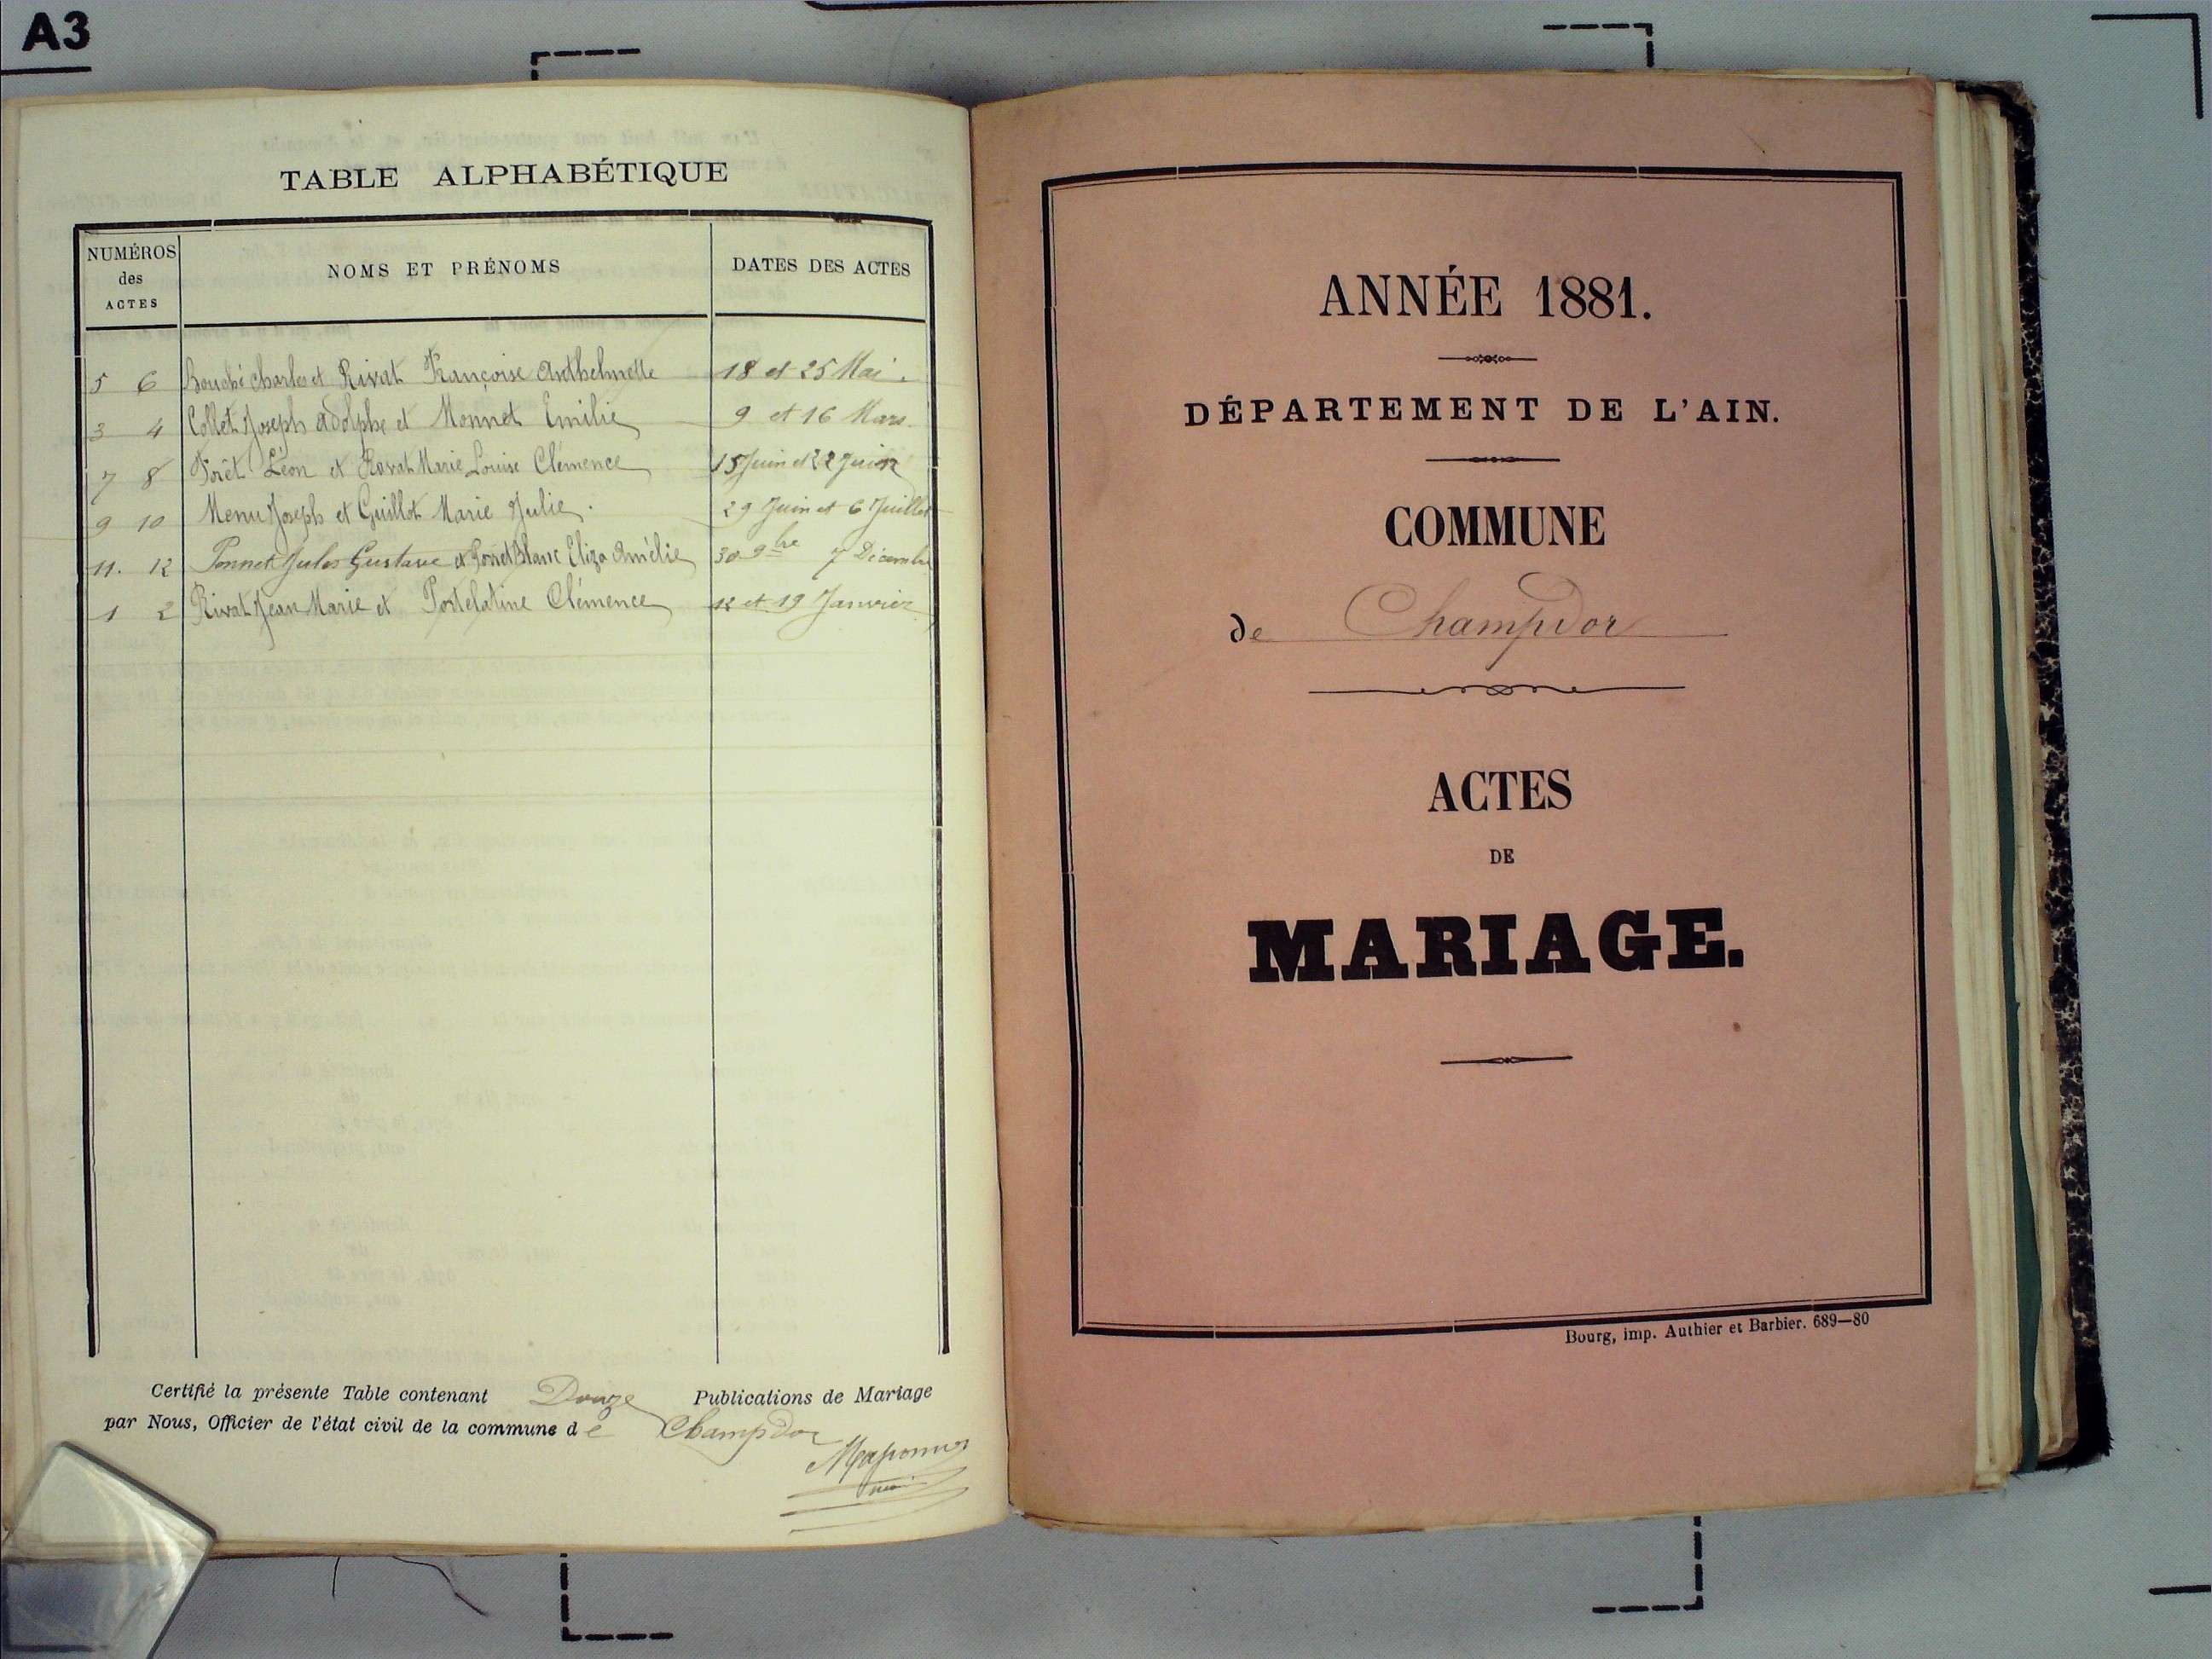 A3
TABLE ALPHABÉTIQUE
NUMÉROS des ACTES NOMS ET PRÉNOMS DATES DES ACTES
5 6 Bouché Charles et Rivat Françoise Anthelmette 18 et 25 Mai.
3 4 Collet Joseph Adolphe et Monnet Emilie 9 et 16 Mars.
7 8 Forêt Léon et Ravat Marie Louise Clémence 15 Juin et 22 Juin
9 10 Menu Joseph et Guillot Marie Julie. 29 Juin et 6 Juillet
11. 12 Ponnet Jules Gustave et Blanc Eliza Amélie 30 9bre 7 Décembre
1 2 Rivat Jean Marie et Portelatine Clémence 12 et 19 Janvier
Certifié la présente Table contenant Douze Publications de Mariage
par Nous, Officier de l'état civil de la commune de Champdor
ANNÉE 1881.
DÉPARTEMENT DE L'AIN.
COMMUNE
de Champdor
ACTES
DE
MARIAGE.
Bourg, imp. Authier et Barbier. 689—80